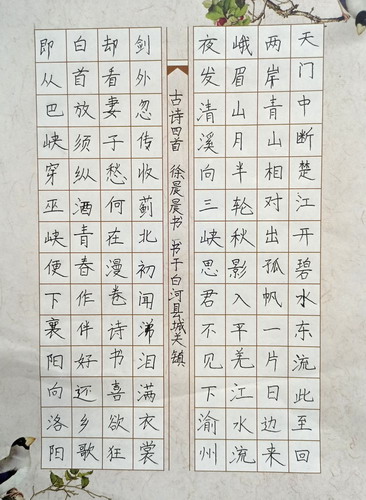 天门中断楚江开碧水东流此至回
两岸青山相对出孤帆一片日边来
峨眉山月半轮秋影入平羌江水流
夜发清溪向三峡思君不见下渝州
古诗四首 徐晨晨书 书于白河县城关镇
剑外忽传收蓟北初闻涕泪满衣裳
却看妻子愁何在漫卷诗书喜欲狂
白首放须纵酒青春作伴好还乡歌
即从巴峡穿巫峡便下襄阳向洛阳